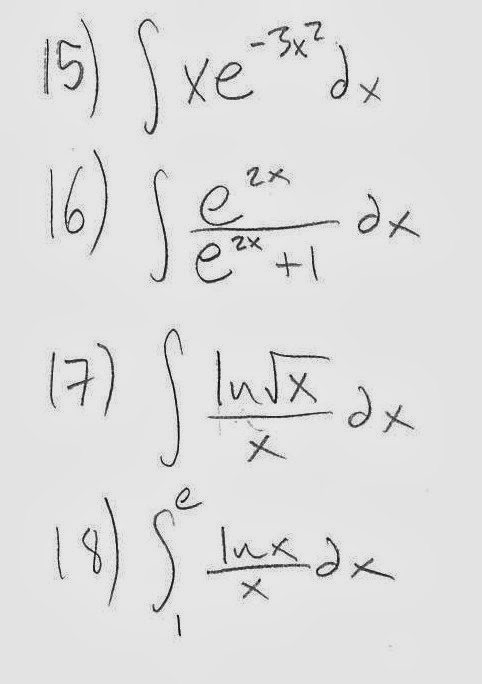 15) ∫ xe^{-3x^2} dx
16) ∫ \frac{e^{2x}}{e^{2x}+1} dx
17) ∫ \frac{ln√x}{x} dx
18) ∫_1^e \frac{lnx}{x} dx